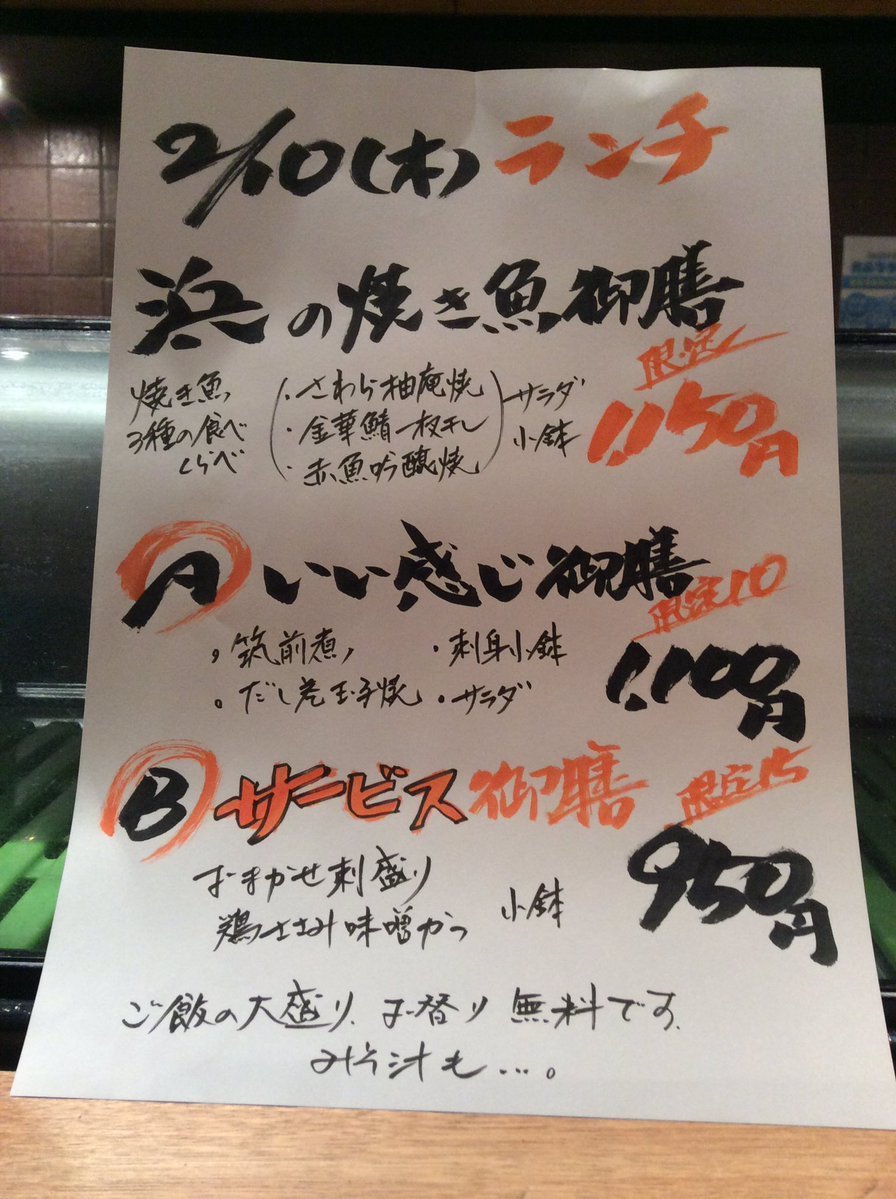 2/10(木)ランチ
浜の焼き魚御膳
限定
焼き魚
3種の食べ
くらべ
・さわら柚庵焼
・金華鯖一枚干し
・赤魚吟醸焼
サラダ
小鉢
1,150円
A いい感じ御膳
限定10
・筑前煮
・刺身小鉢
・だし巻玉子焼
・サラダ
1,100円
B サービス御膳
限定15
おまかせ刺盛り
鶏ささみ味噌かつ
小鉢
950円
ご飯の大盛り、お替り無料です。
みそ汁も…。